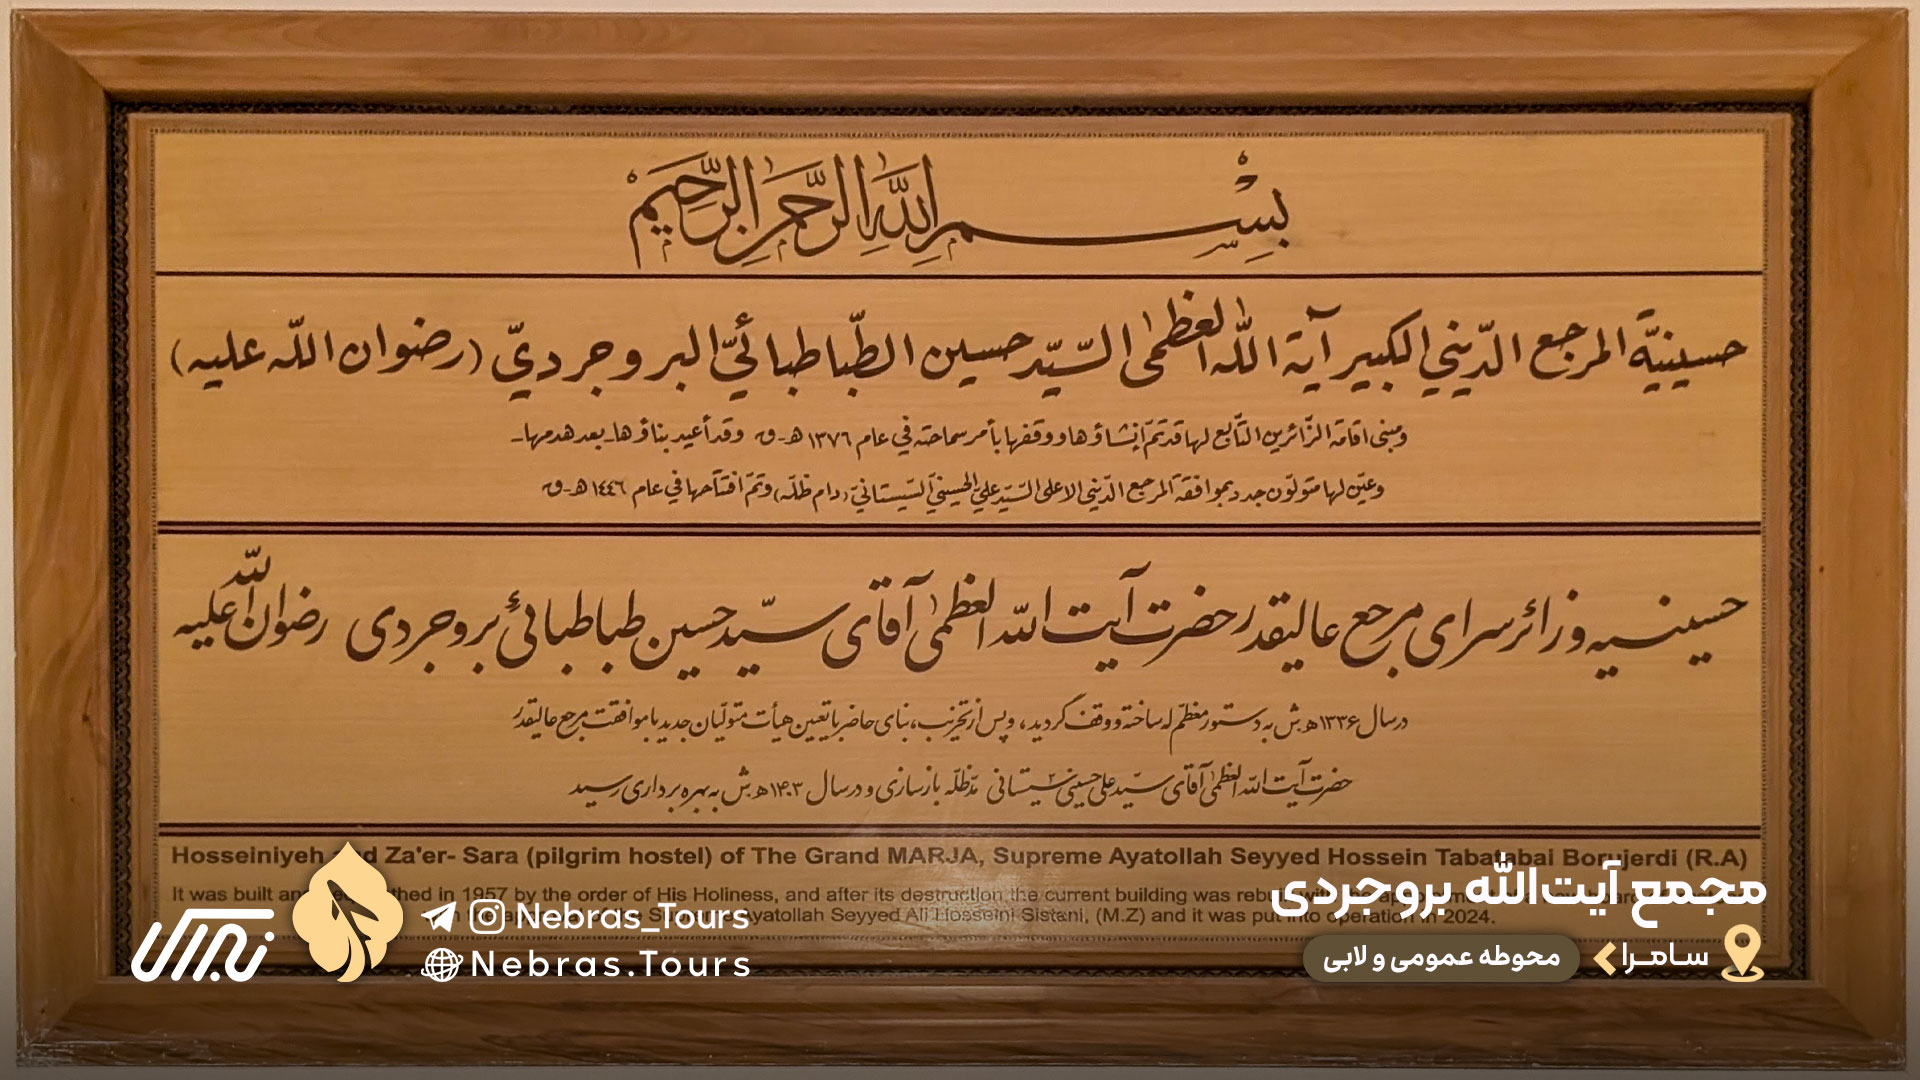 بِسْمِ اللهِ الرَّحْمٰنِ الرَّحِيْمِ
حسينيّة المرجع الدّيني الكبير آية اللّٰه العظمٰى السّيّد حسين الطّباطبائيّ البروجرديّ (رضوان اللّه عليه)
ومبنى اقامة الزّائرين التّابع لها قد تمّ إنشاؤها ووقفها بأمر سماحته في عام ١٣٧٦ هـ-ق وقد أعيد بناؤها-بعد هدمها-
وعيّن لها متولّون جدد بموافقة المرجع الدّيني الاعلى السّيّد عليّ الحسينيّ السّيستانيّ (دام ظلّه) وتمّ افتتاحها في عام ١٤٤٦ هـ-ق
حسینیه و زائرسرای مرجع عالیقدر حضرت آیت اللّه العظمیٰ آقای سیّد حسین طباطبائی بروجردی رضوان اللّه علیه
در سال ۱۳۳۶ ه ش به دستور معظّم له ساخته و وقف گردید، و پس از تخریب، بنای حاضر با تعیین هیأت متولّیان جدید با موافقت مرجع عالیقدر
حضرت آیت اللّه العظمیٰ آقای سیّد علی حسینی سیستانی مدّ ظلّه بازسازی و در سال ۱۴۰۳ ه ش به بهره برداری رسید
Hosseiniyeh and Za'er- Sara (pilgrim hostel) of The Grand MARJA, Supreme Ayatollah Seyyed Hossein Tabatabai Borujerdi (R.A)
It was built and in 1957 by the order of His Holiness, and after its destruction the current building was
Ayatollah Seyyed Ali Hosseini Sistani, (M.Z) and it was put into operation in 2024.
مجمع آیت‌الله بروجردی
سامرا
محوطه عمومی و لابی
نبراس
Nebras_Tours
Nebras.Tours